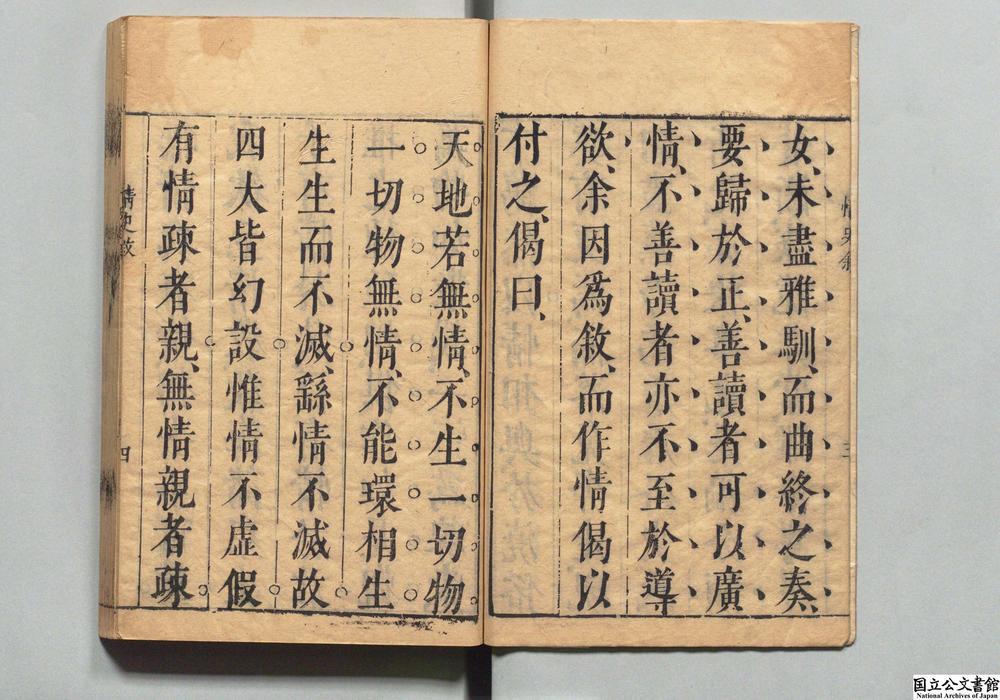 女、未盡雅馴、而曲終之奏、
要歸於正、善讀者可以廣
情、不善讀者亦不至於導
欲、余因爲敘、而作情偈以
付之、偈曰、
天地若無情、不生一切物
一切物無情、不能環相生
生生而不滅、繇情不滅故
四大皆幻設惟情不虛假
有情疎者親、無情親者疎
情史敘
三
情史敘
四
国立公文書館
National Archives of Japan